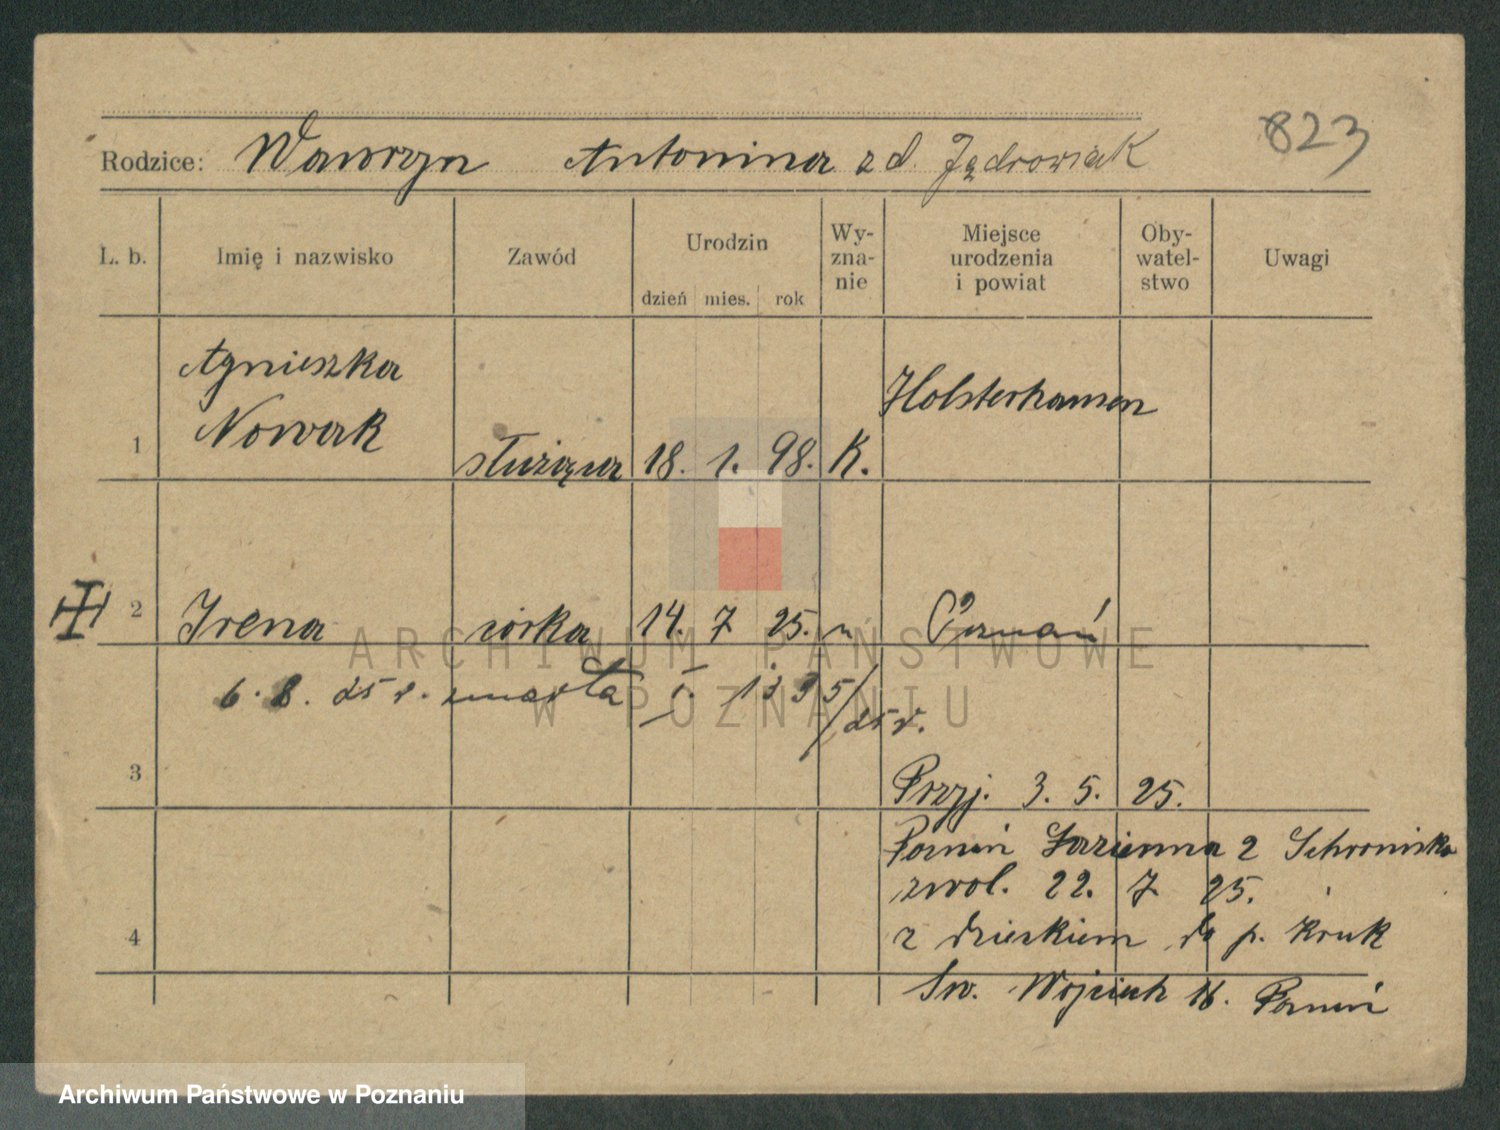 823
Rodzice: Wawrzyn Antonina zd. Jądrowiak
L. b. Imię i nazwisko Zawód Urodzin dzień mies. rok Wy-zna-nie Miejsce urodzenia i powiat Oby-watel-stwo Uwagi
Agnieszka
Holsterhausen
1 Nowak służąca 18. 1. 98. K.
2 Irena córka 14. 7 25. " Poznań
6. 8. 25 r. zmarła I. 1395/25 r.
3 Przyj. 3. 5. 25.
Poznań Łazienna 2 Schronisko
zwol. 22. 7 25.
4 z dzieckiem do p. Kruk
Św. Wojciech 16. Poznań
ARCHIWUM PAŃSTWOWE
W POZNANIU
Archiwum Państwowe w Poznaniu